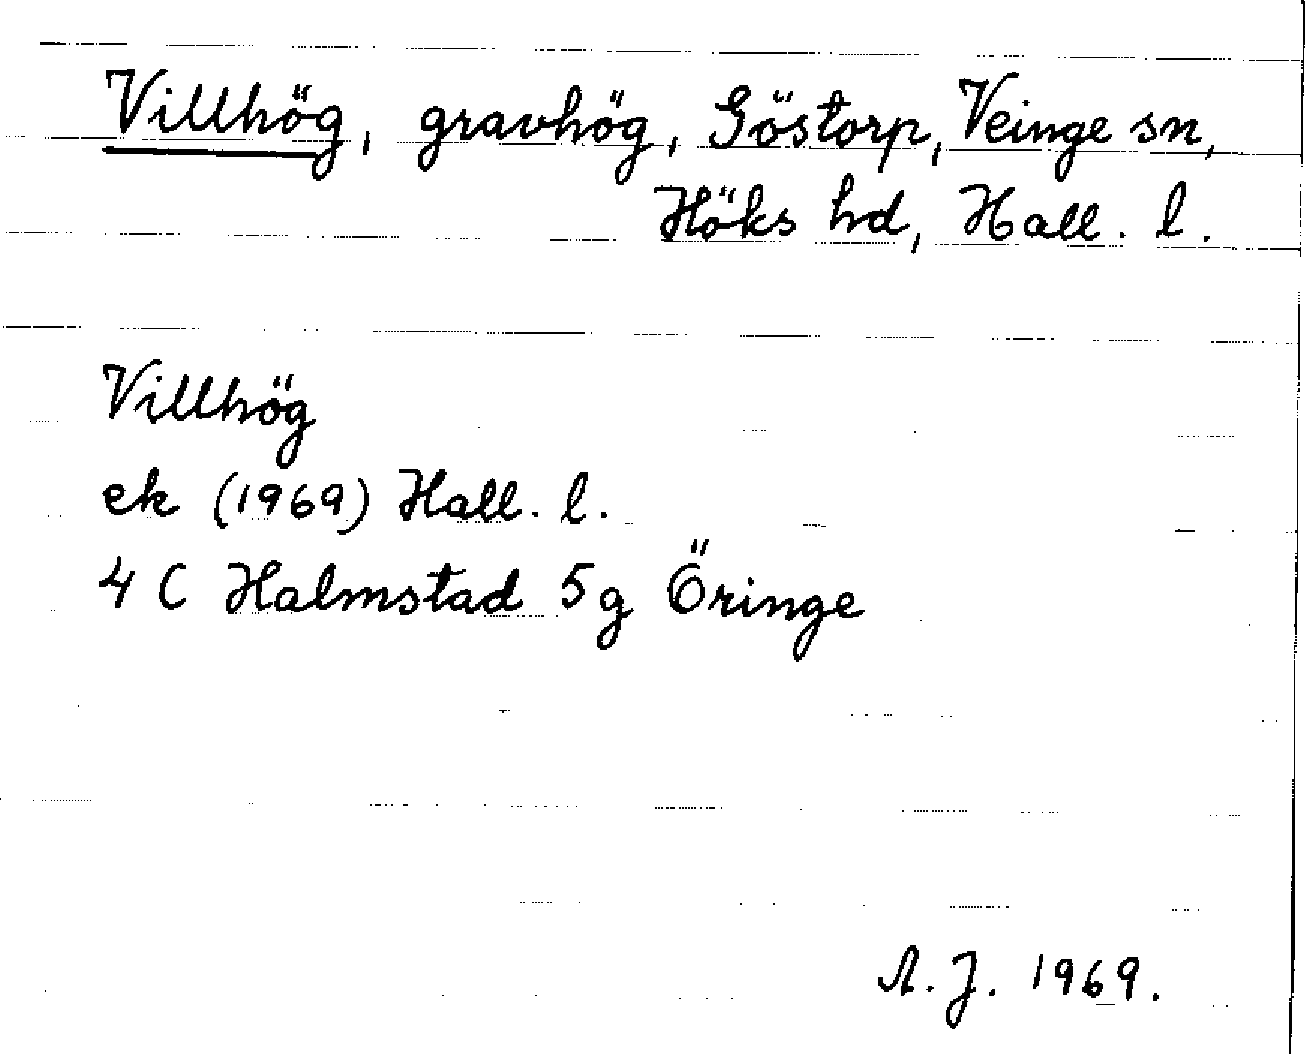 Villhög, gravhög, Göstorp, Veinge sn,
Höks hd, Hall. l.
Villhög
ek (1969) Hall. l.
4 C Halmstad 5g Öringe
A. J. 1969.